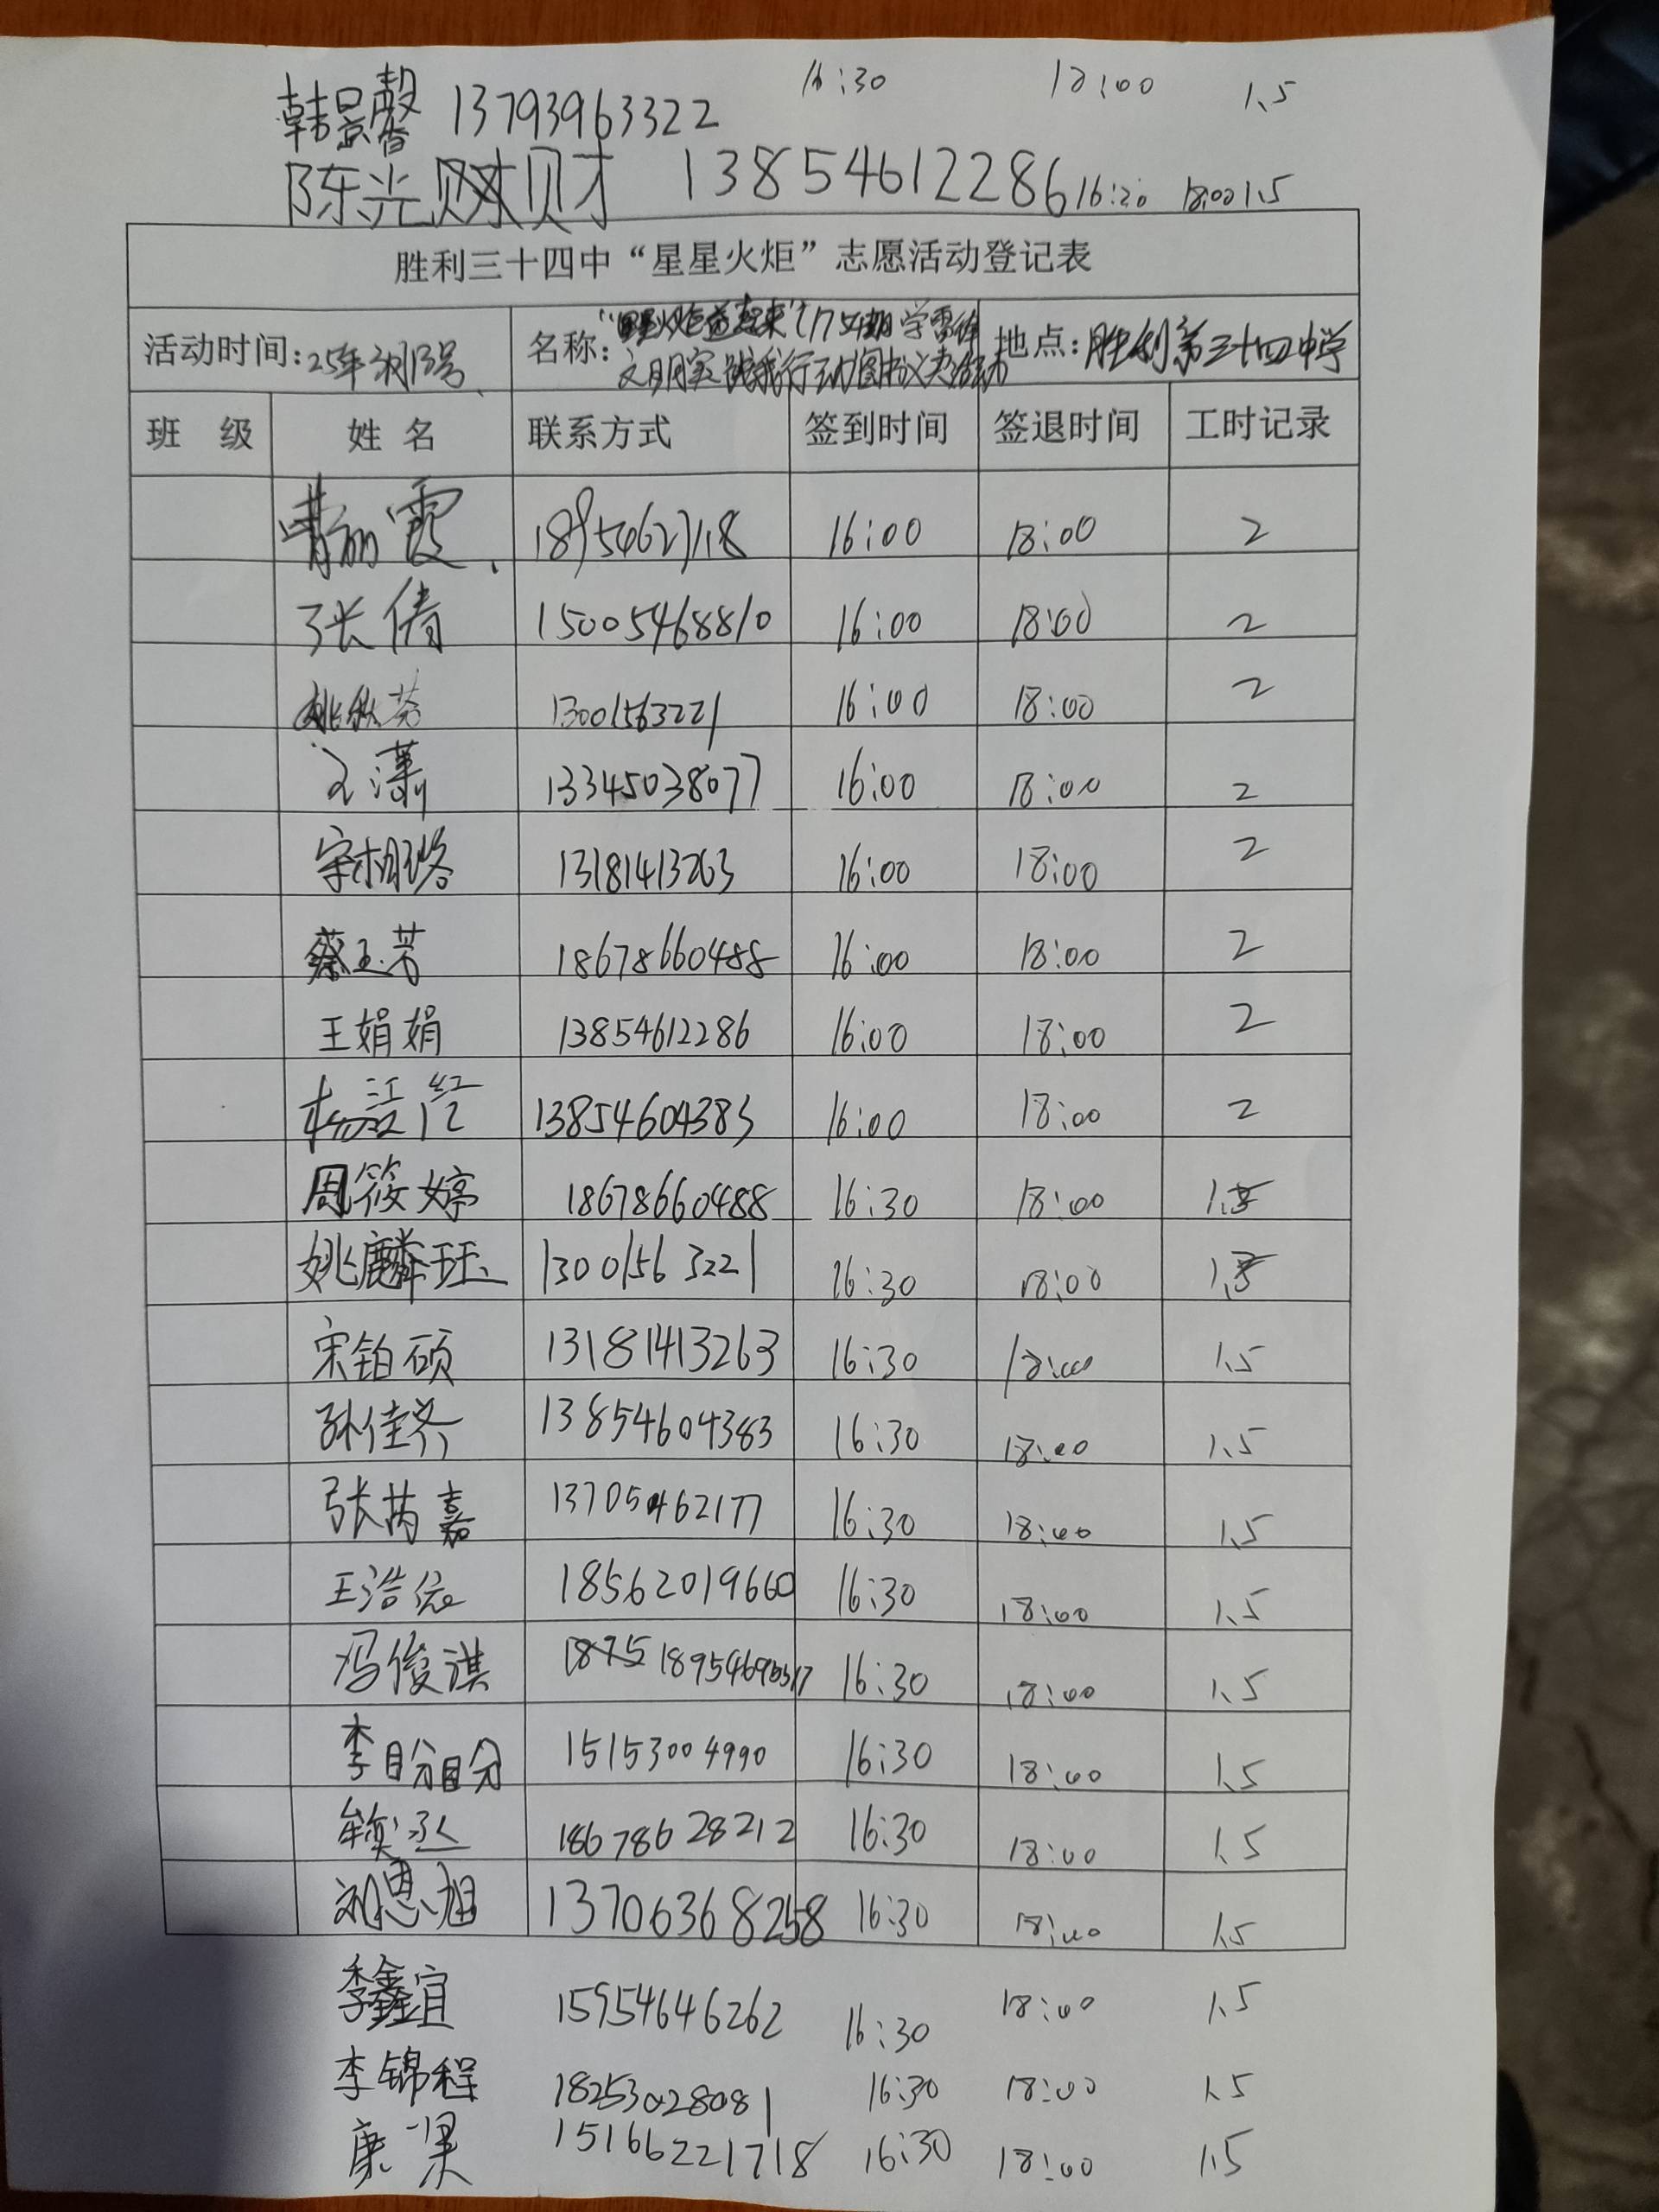 韩景馨 13793963322 16:30 18:00 1.5
陈光财 13854612286 16:30 18:00 1.5
胜利三十四中“星星火炬”志愿活动登记表
活动时间：25年3月13号 名称： 学雷锋 地点：胜利第三十四中学
文明实践我行动图书义卖活动
班 级 姓 名 联系方式 签到时间 签退时间 工时记录
霞 16:00 18:00 2
张倩 15005468810 16:00 18:00 2
姚秋芬 13001563221 16:00 18:00 2
王潇 13345038077 16:00 18:00 2
宋相珞 13181413263 16:00 18:00 2
蔡玉芳 18678660488 16:00 18:00 2
王娟娟 13854612286 16:00 18:00 2
13854604383 16:00 18:00 2
周筱婷 18678660488 16:30 18:00 1.5
姚麟珏 13001563221 16:30 18:00 1.5
宋铂硕 13181413263 16:30 18:00 1.5
孙佳齐 13854604383 16:30 18:00 1.5
张芮嘉 13705462177 16:30 18:00 1.5
王浩 18562019660 16:30 18:00 1.5
冯俊淇 16:30 18:00 1.5
李盼盼 15153004990 16:30 18:00 1.5
18678628212 16:30 18:00 1.5
刘恩旭 13706368258 16:30 18:00 1.5
李鑫宜 15954646262 16:30 18:00 1.5
李锦程 18253028081 16:30 18:00 1.5
康一梁 15166221718 16:30 18:00 1.5